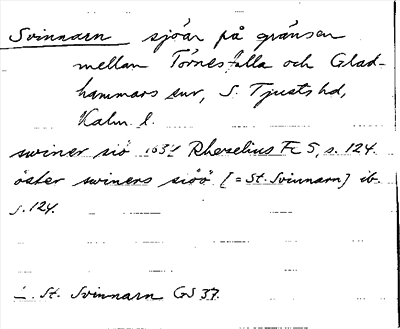 Svinnarn sjöar på gränsen
mellan Törnesfalla och Glad-
hammars snr, S. Tjusts hd,
Kalm. l.
swiner siö 1634 Rhezelius Fc 5, s. 124.
öster swiners siöö [= St. Svinnarn] ib.
s. 124.
L. St. Svinnarn GS 37.